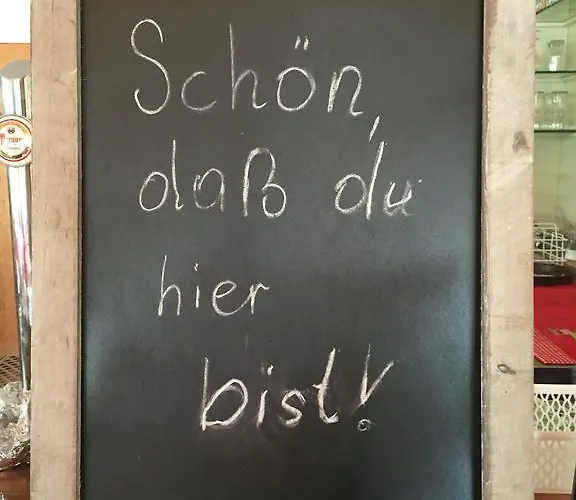 Schön,
daß du
hier
bist!